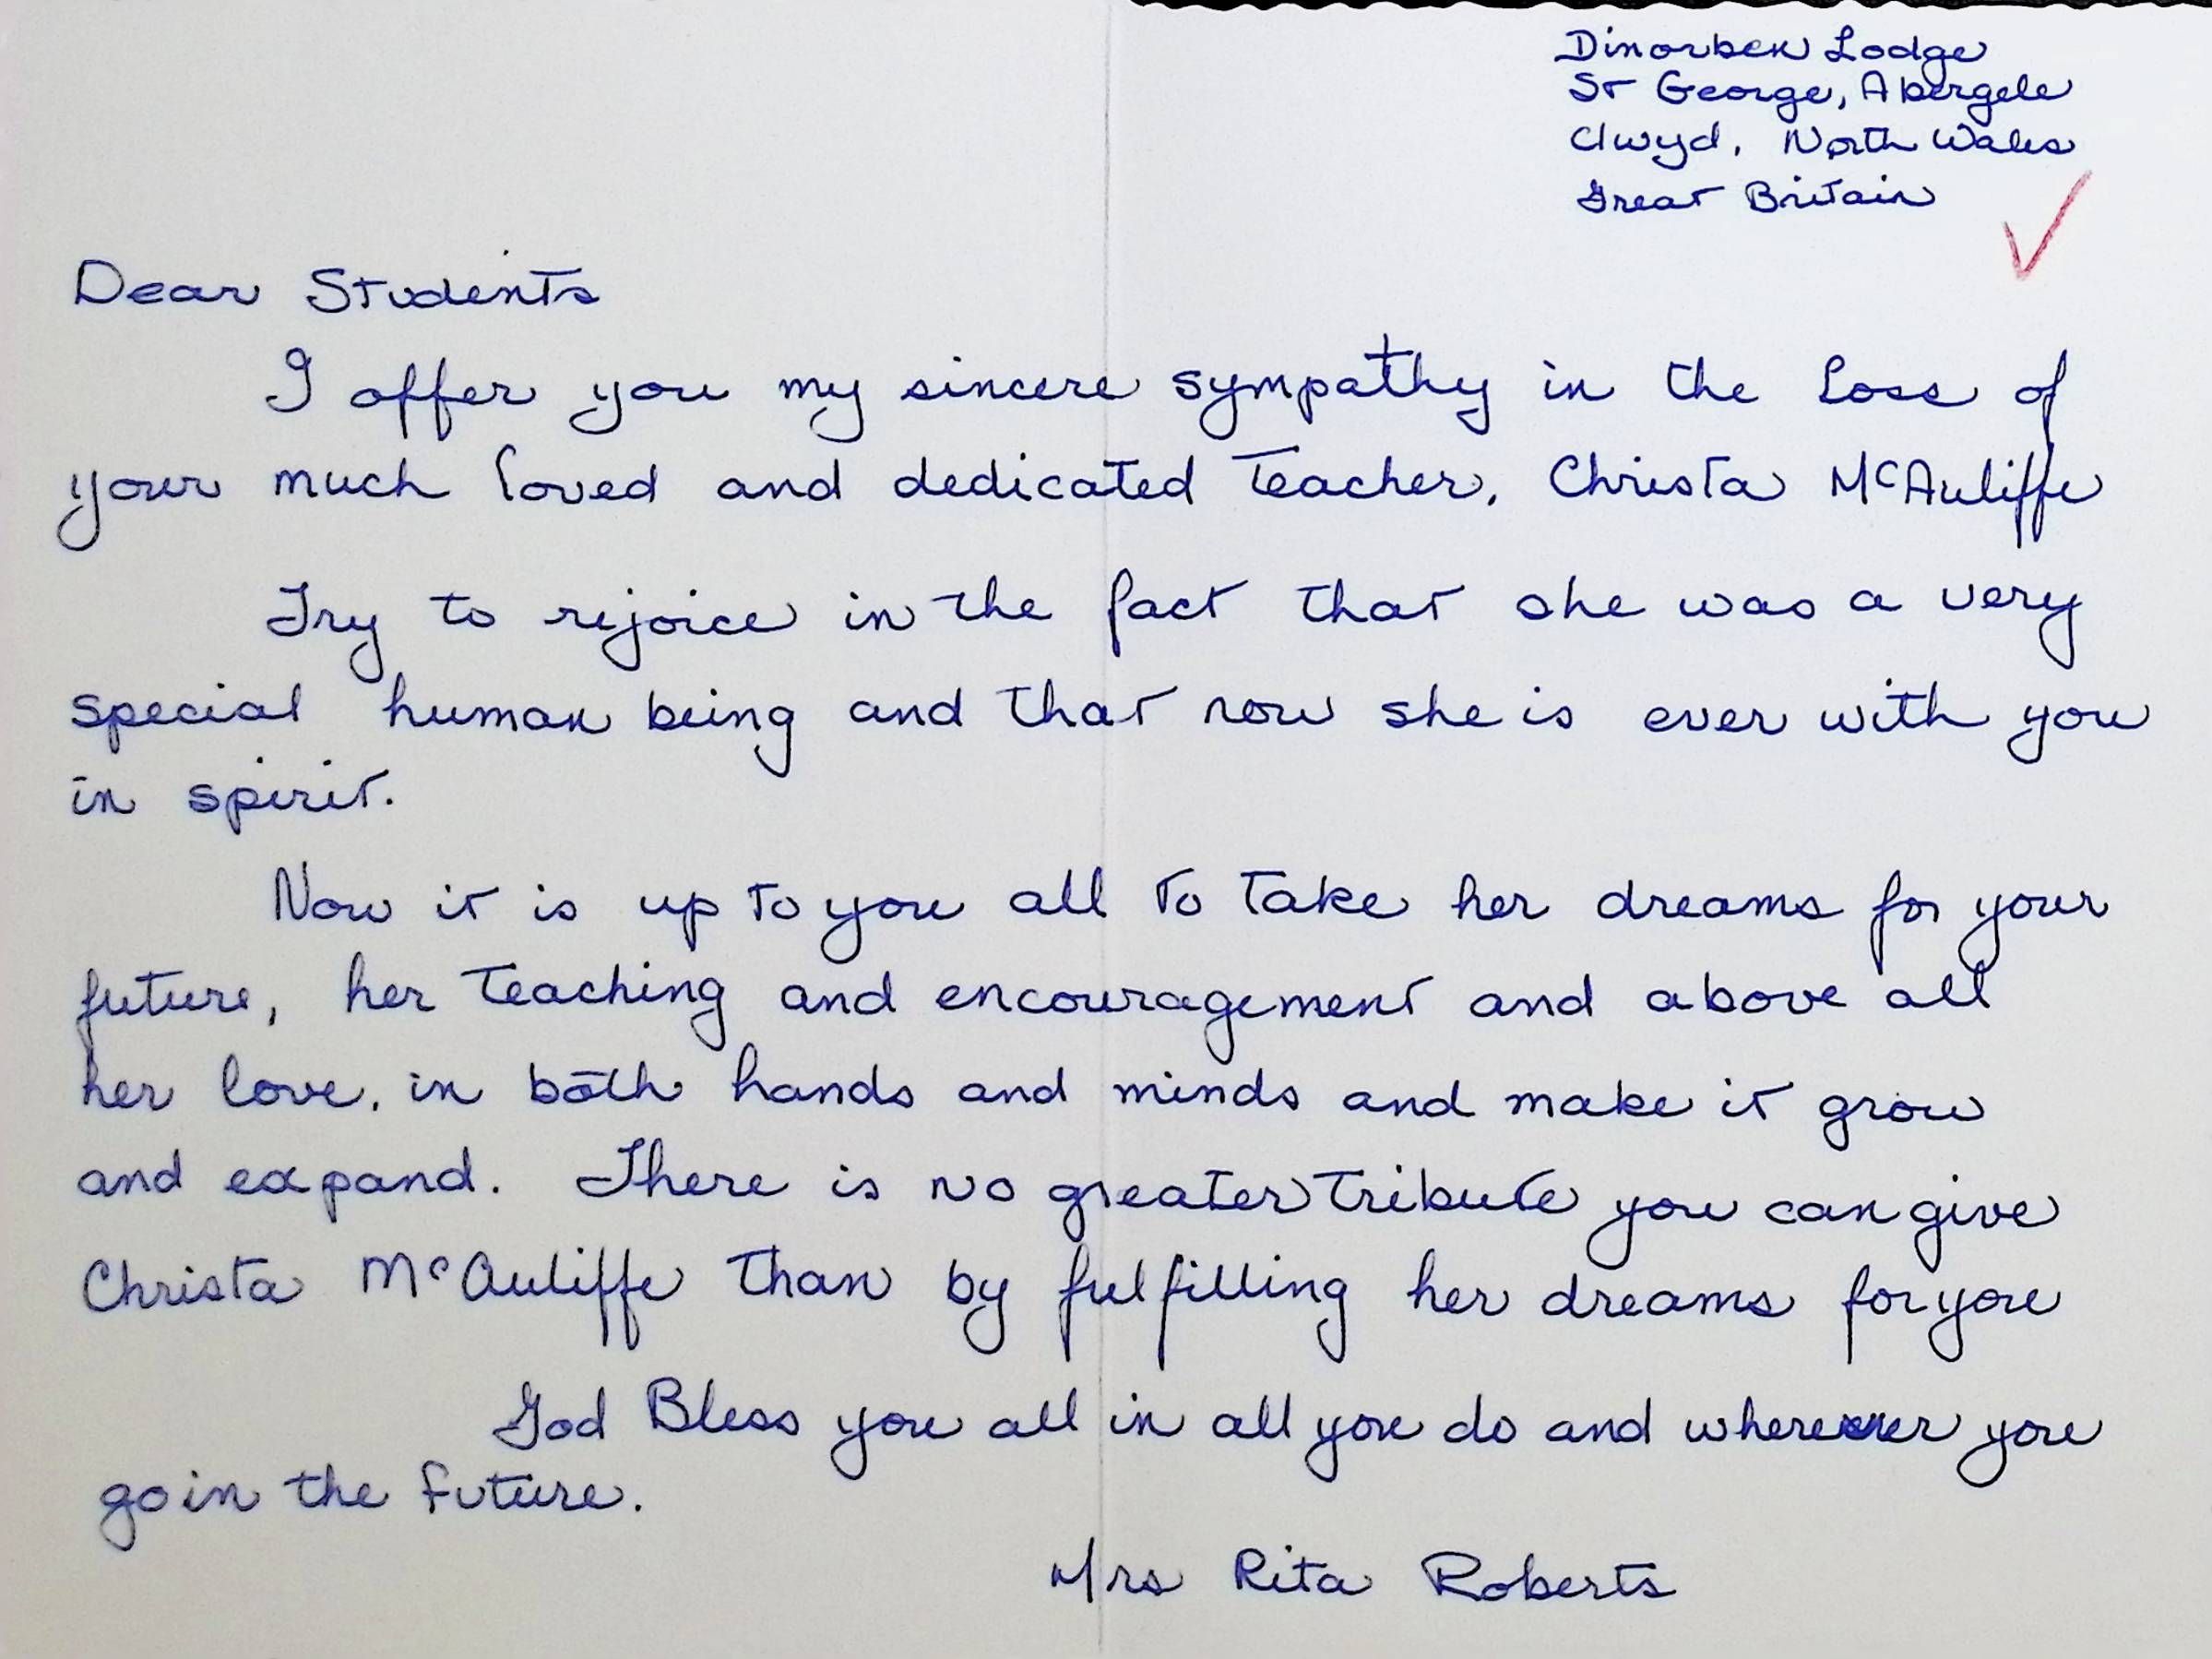 Dinorben Lodge
St George, Abergele
Clwyd, North Wales
Great Britain
Dear Students
I offer you my sincere sympathy in the loss of
your much loved and dedicated teacher, Christa McAuliffe
Try to rejoice in the fact that she was a very
special human being and that now she is ever with you
in spirit.
Now it is up to you all to take her dreams for your
future, her teaching and encouragement and above all
her love, in both hands and minds and make it grow
and expand. There is no greater tribute you can give
Christa McAuliffe than by fulfilling her dreams for you
God Bless you all in all you do and wherever you
go in the future.
Mrs Rita Roberts